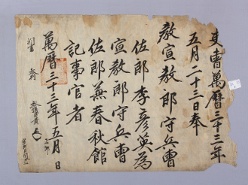 吏曹萬曆三十三年
五月二十三日奉
教宣教郎守兵曹
佐郎李彦英為
宣教郎守兵曹
佐郎兼春秋館
記事官者
萬曆三十三年五月 日